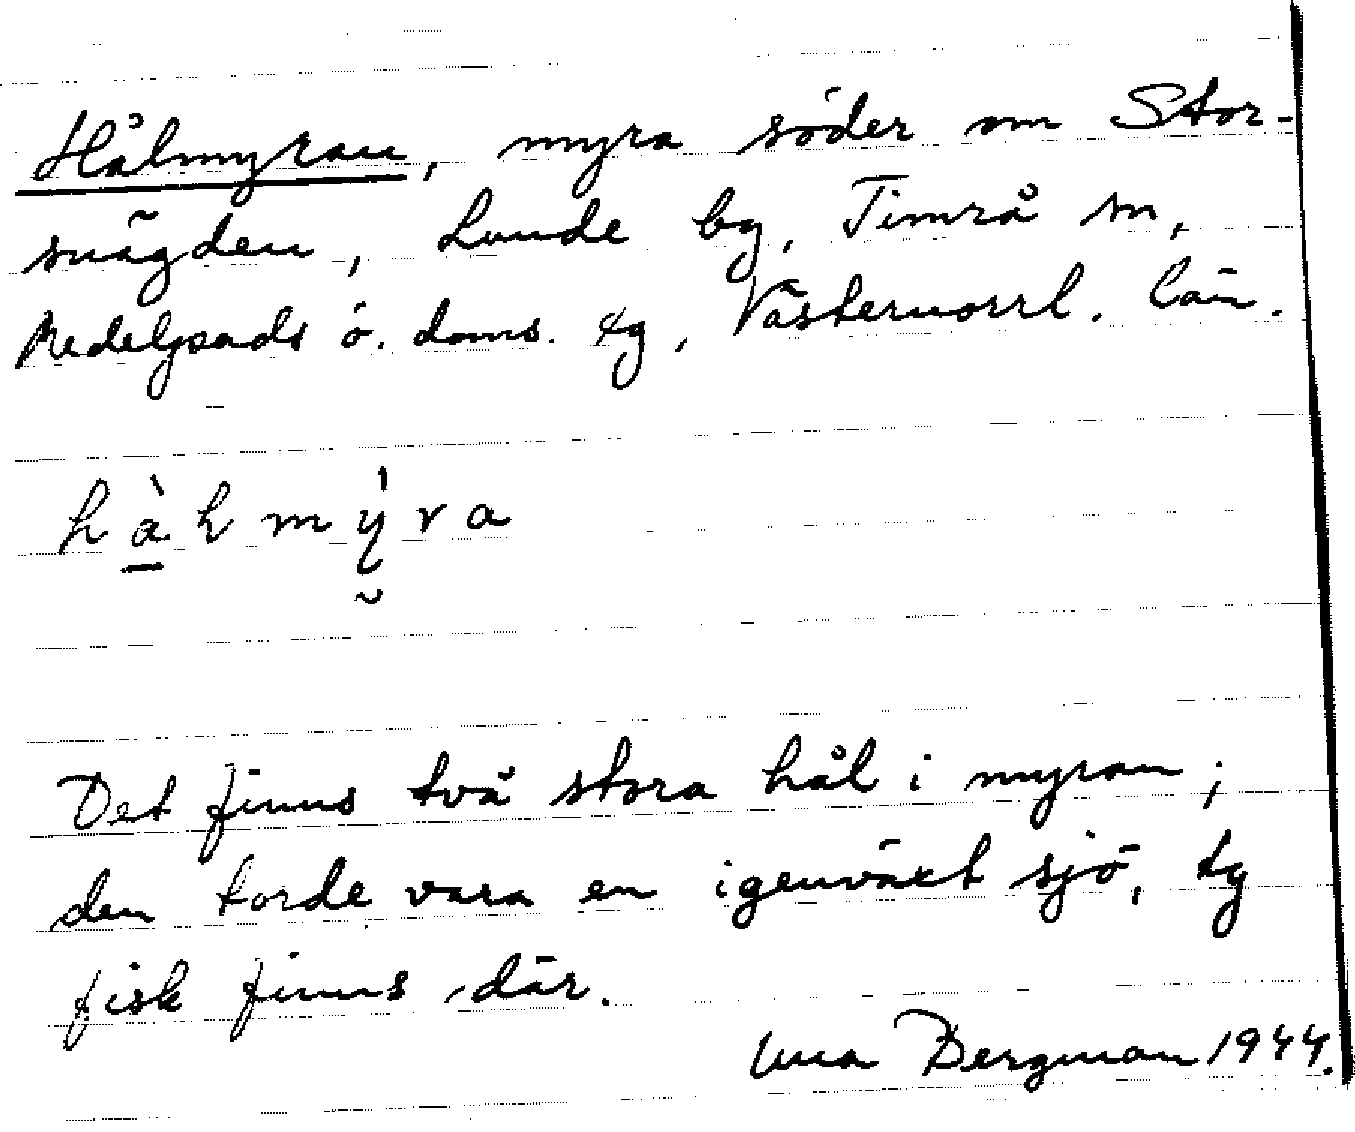 Hålmyran, myra söder om Stor-
snägden, Lunde by, Timrå sn,
Medelpads ö. doms. tg, Västernorrl. län.
hàlmy̌ra
Det finns två stora hål i myran;
den torde vara en igenväxt sjö, ty
fisk finns där.
Bergman 1944.